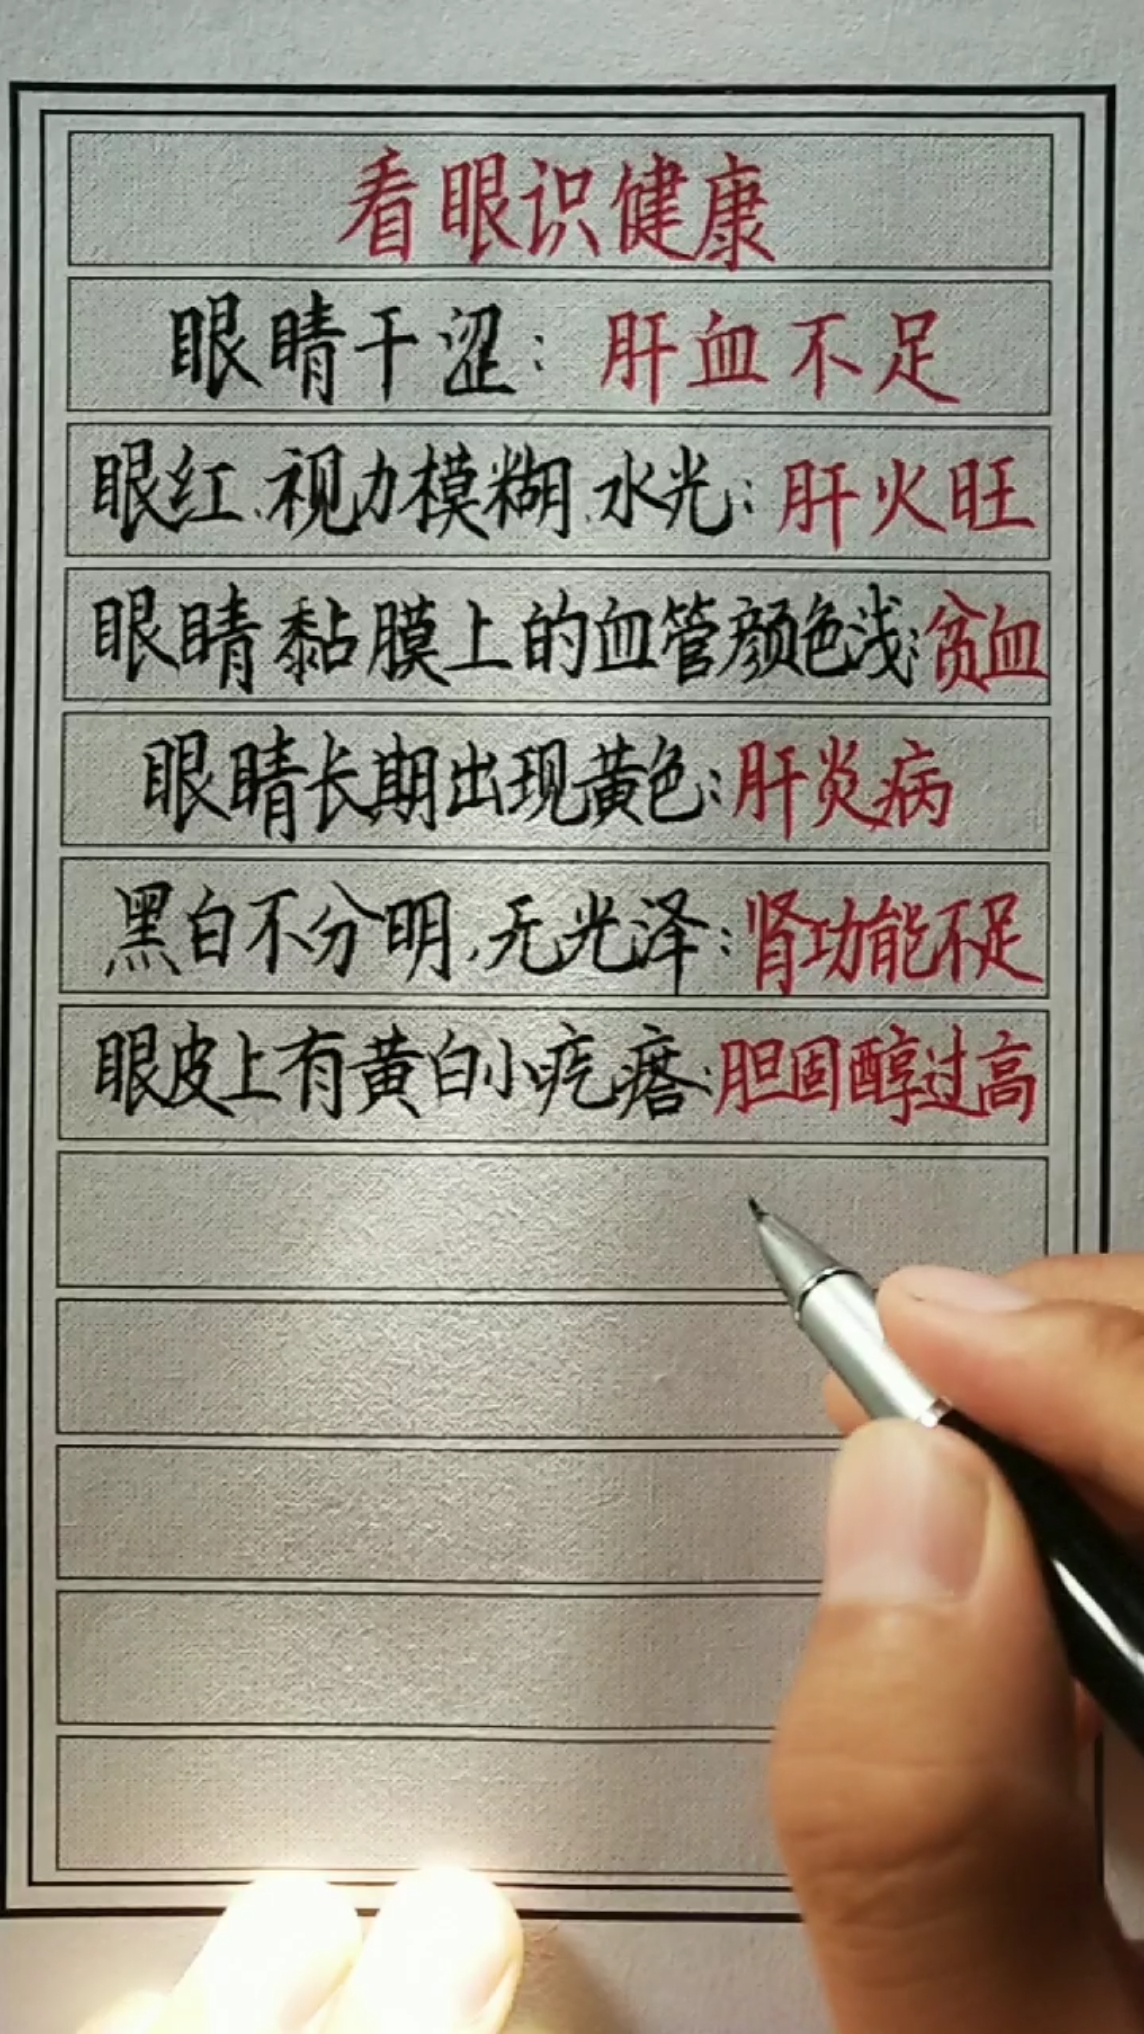 看眼识健康
眼睛干涩：肝血不足
眼红、视力模糊、水光：肝火旺
眼睛黏膜上的血管颜色浅：贫血
眼睛长期出现黄色：肝炎病
黑白不分明，无光泽：肾功能不足
眼皮上有黄白小疙瘩：胆固醇过高